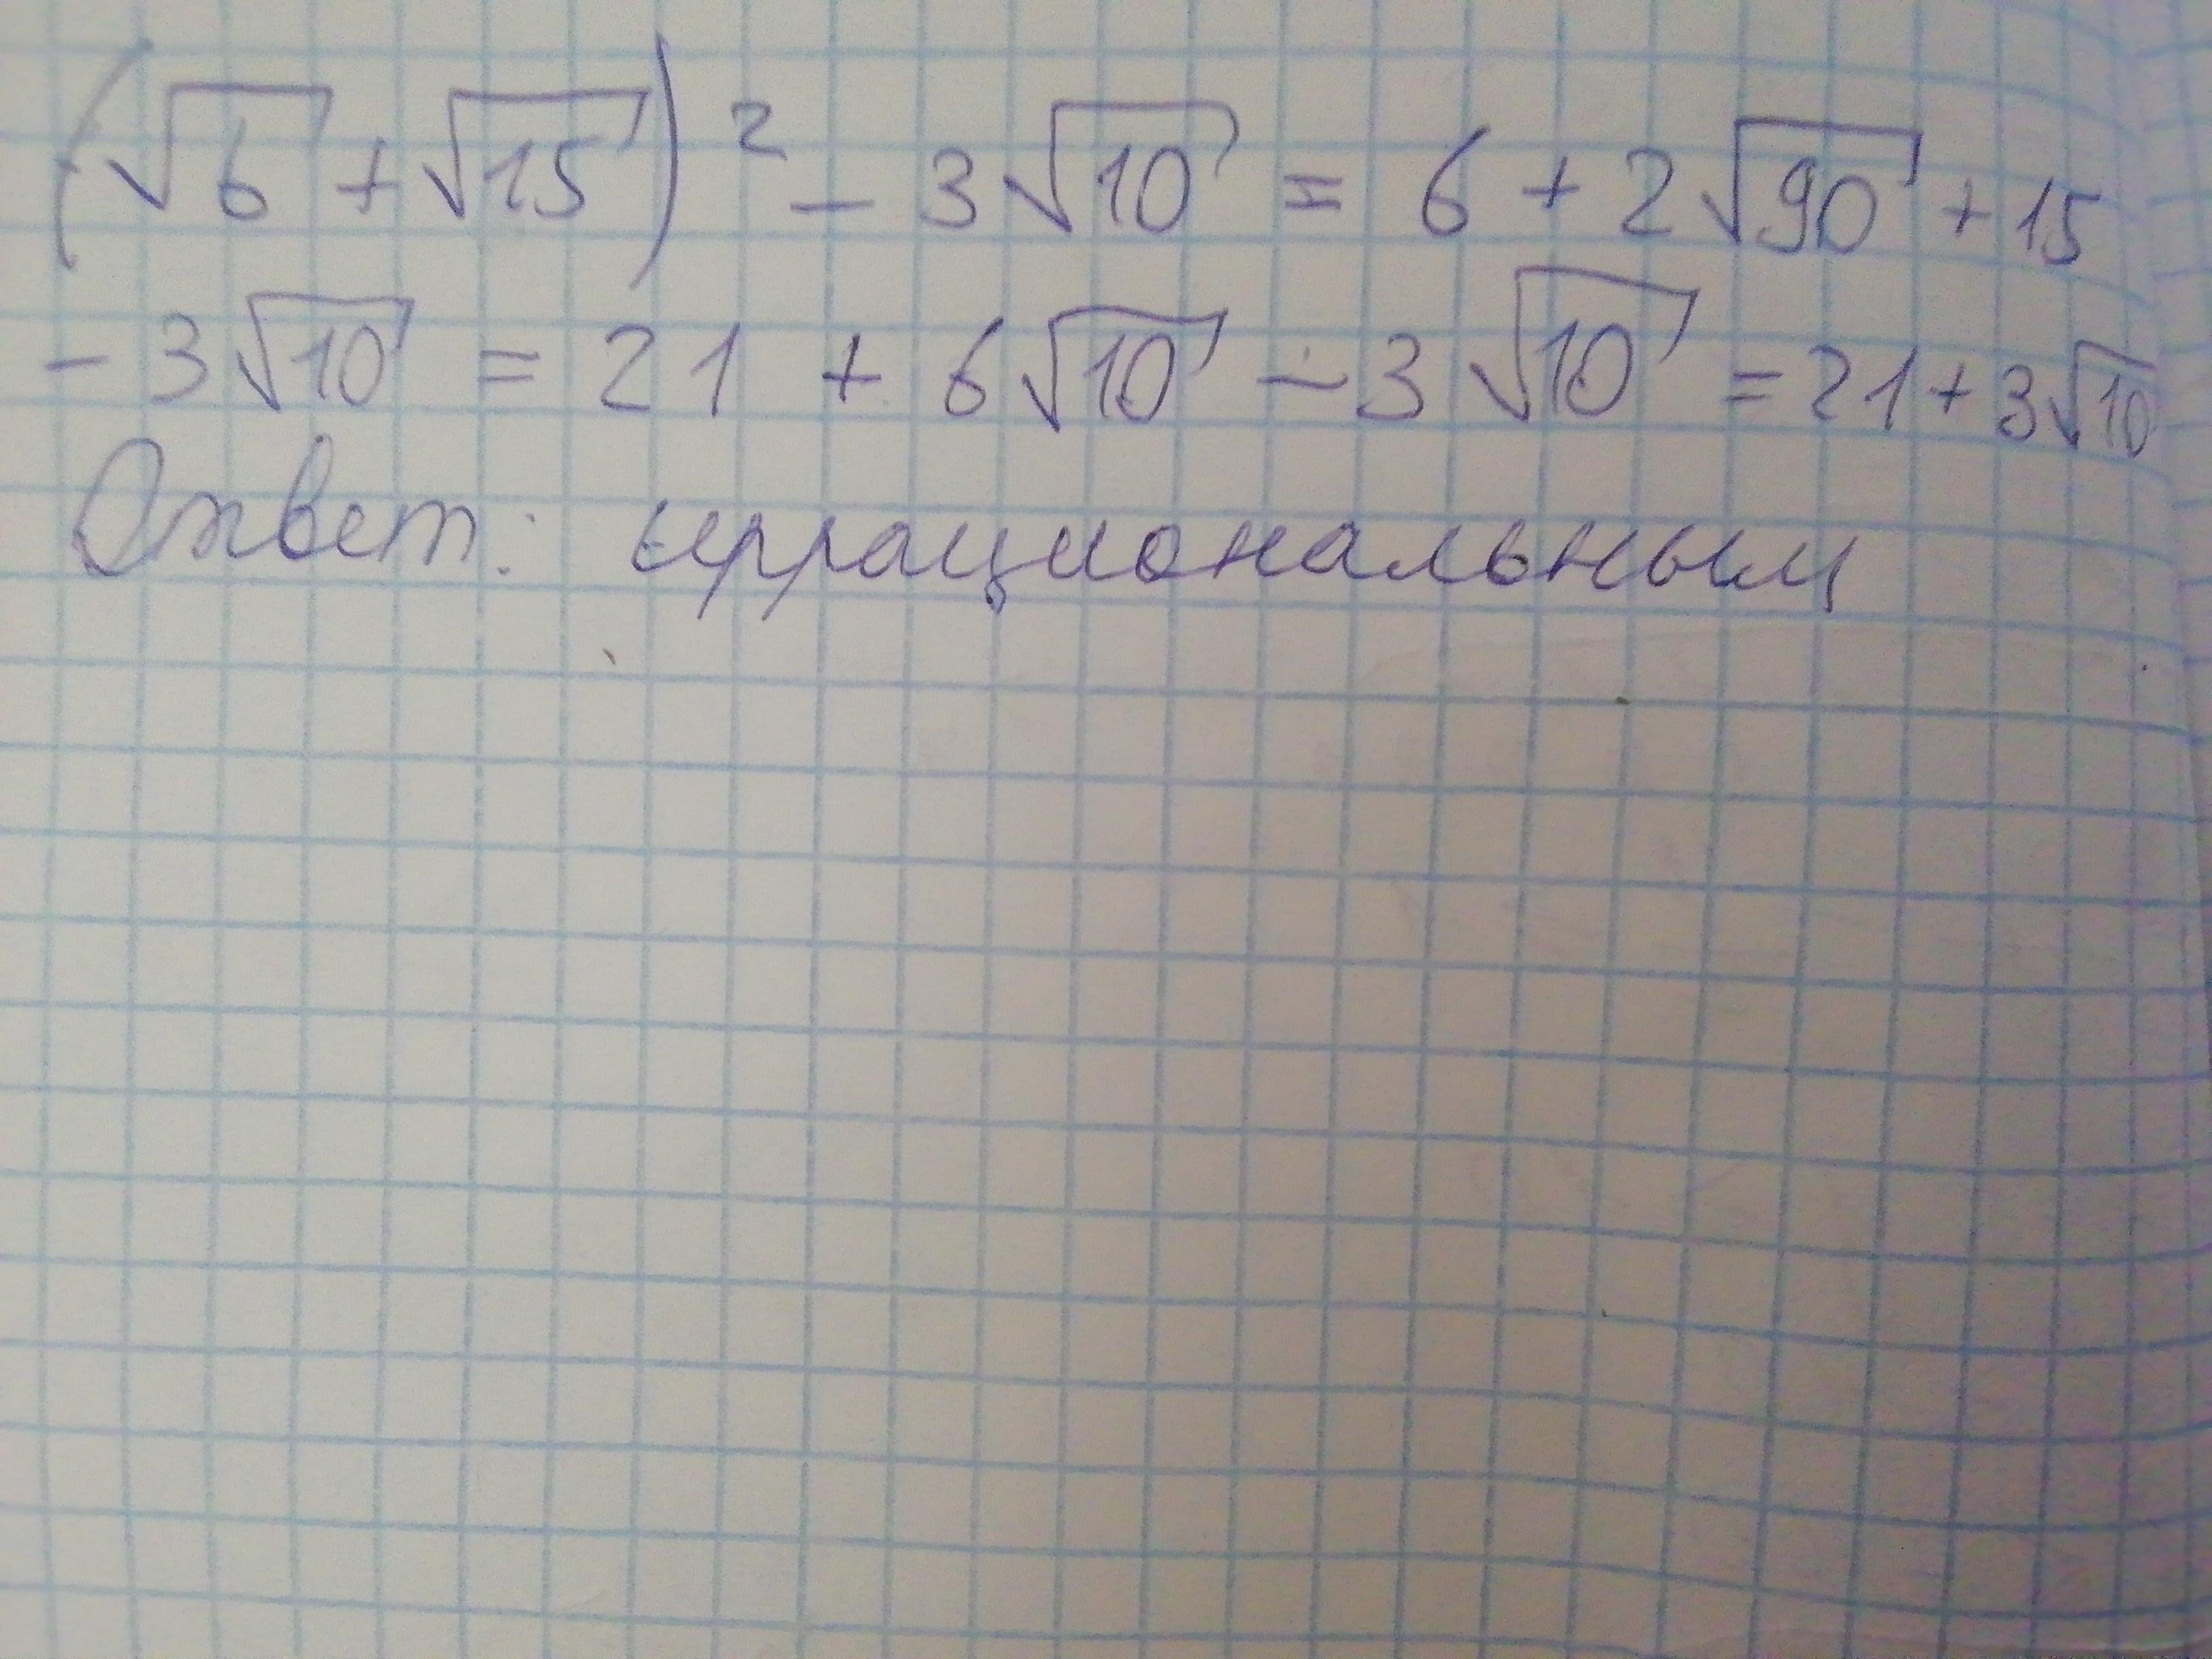 (√6 + √15)² - 3√10 = 6 + 2√90 + 15
- 3√10 = 21 + 6√10 - 3√10 = 21 + 3√10
Ответ: иррациональным